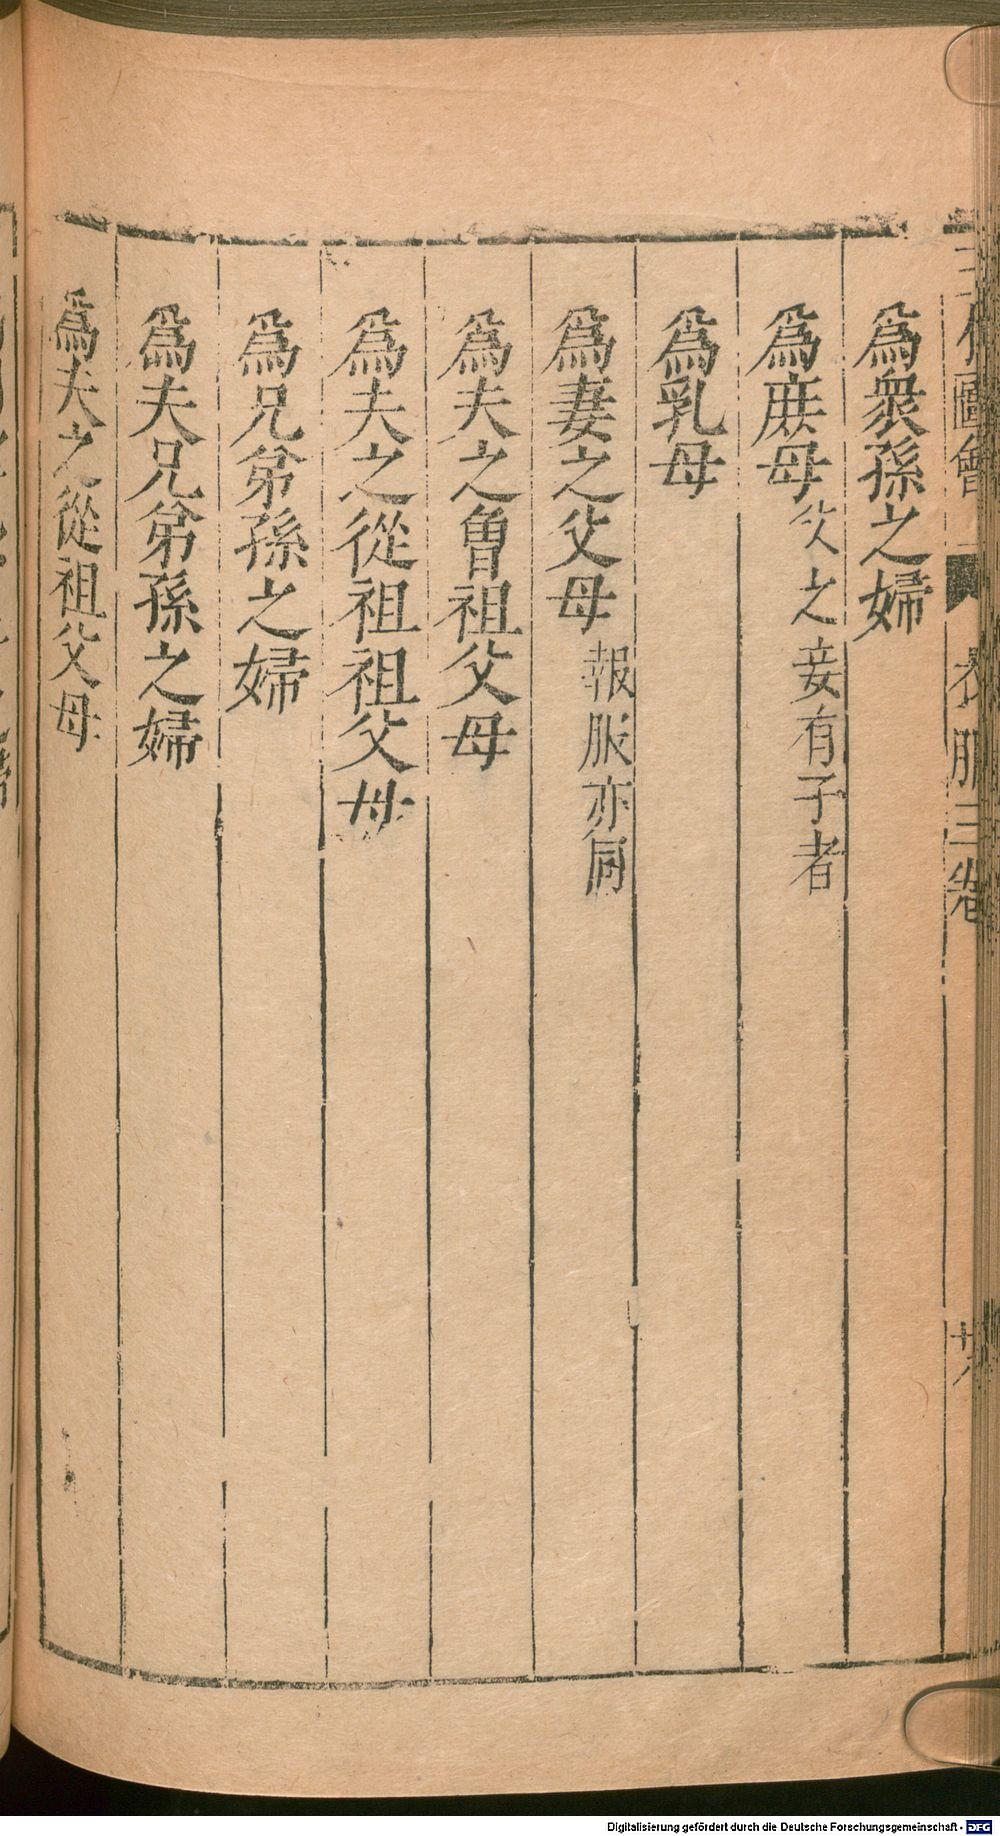 圖會 衣服三卷 廿八
爲衆孫之婦
爲庶母父之妾有子者
爲乳母
爲妻之父母報服亦同
爲夫之曾祖父母
爲夫之從祖祖父母
爲兄弟孫之婦
爲夫兄弟孫之婦
爲夫之從祖父母
Digitalisierung gefördert durch die Deutsche Forschungsgemeinschaft - DFG